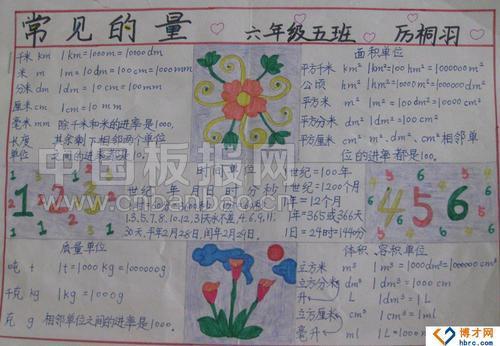 常见的量 六年级五班 厉桐羽
千米 km 1km=1000m=10000dm
米 m 1m=10dm=100cm=1000mm
分米 dm 1dm=10cm=100mm
厘米 cm 1cm=10mm
毫米 mm 除千米和米的进率是1000,
长度 其余剩下相邻两个单位
单位 之间的进率都是10。
面积单位
平方千米 km² 1km²=100hm²=1000000m²
公顷 hm² 1hm²=10000m²=1000000dm²
平方米 m² 1m²=100dm²=10000cm²
平方分米 dm² 1dm²=100cm²
平方厘米 cm² m²、dm²、cm²相邻单
位的进率都是100。
中国板报网
www.cnbanbao.cn
123
时间单位
世纪 年 月 日 时 分 秒
1.3.5.7.8.10.12.31天永不差,4.6.9.11.
30天,平年2月28日,闰年2月29日。
1世纪=100年
1世纪=1200个月
1年=12个月
1年=365或366天
1日=24时=1440分
456
质量单位
吨 t 1t=1000kg=1000000g
千克 kg 1kg=1000g
克 g 相邻单位之间的进率是1000。
体积、容积单位
立方米 m³ 1m³=1000dm³=1000000cm³
立方分米 dm³ 1dm³=1000cm³
升 L 1dm³=1L
立方厘米 cm³ 1cm³=1mL
毫升 ml 1L=1000ml
博才网
hbrc.com